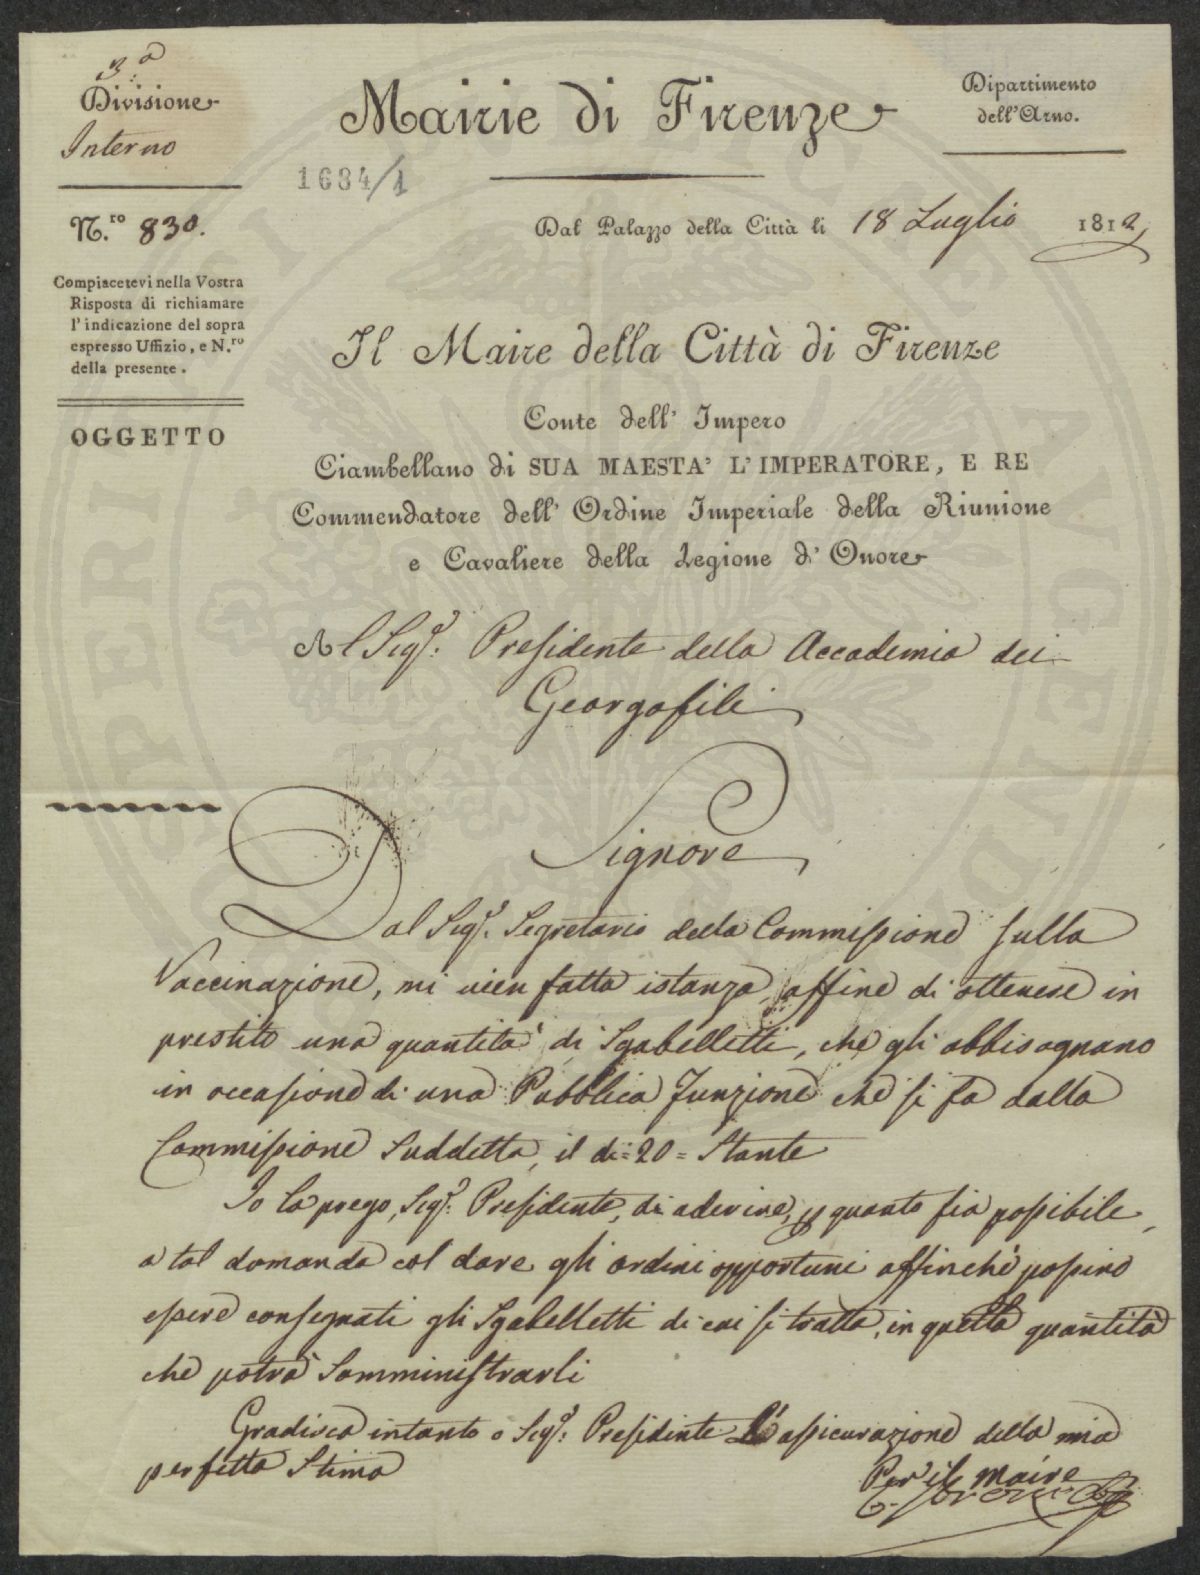 3.a
Divisione
Interno
N.ro 830.
Compiacetevi nella Vostra
Risposta di richiamare
l'indicazione del sopra
espresso Uffizio, e N.ro
della presente.
OGGETTO
Mairie di Firenze
1634/1
Dipartimento
dell'Arno.
Dal Palazzo della Città li 18 Luglio 1812
Il Maire della Città di Firenze
Conte dell' Impero
Ciambellano di SUA MAESTA' L'IMPERATORE, E RE
Commendatore dell' Ordine Imperiale della Riunione
e Cavaliere della Legione d' Onore
Al Sig.r Presidente della Accademia dei
Georgofili
Signore
Dal Sig.r Segretario della Commissione sulla
Vaccinazione, mi vien fatta istanza, affine di ottenere in
prestito una quantità di Sgabelletti, che gli abbisognano
in occasione di una Pubblica Funzione che si fa dalla
Commissione Suddetta, il dì = 20 = Stante
Io la prego, Sig.r Presidente, di aderire, p quanto sia possibile,
a tal domanda col dare gli ordini opportuni affinchè possino
essere consegnati gli Sgabelletti di cui si tratta, in quella quantità
che potrà somministrarli
Gradisca intanto o Sig.r Presidente L'assicurazione della mia
perfetta Stima
Per il Maire
DUOSPERI SUFFICE AUGENDA